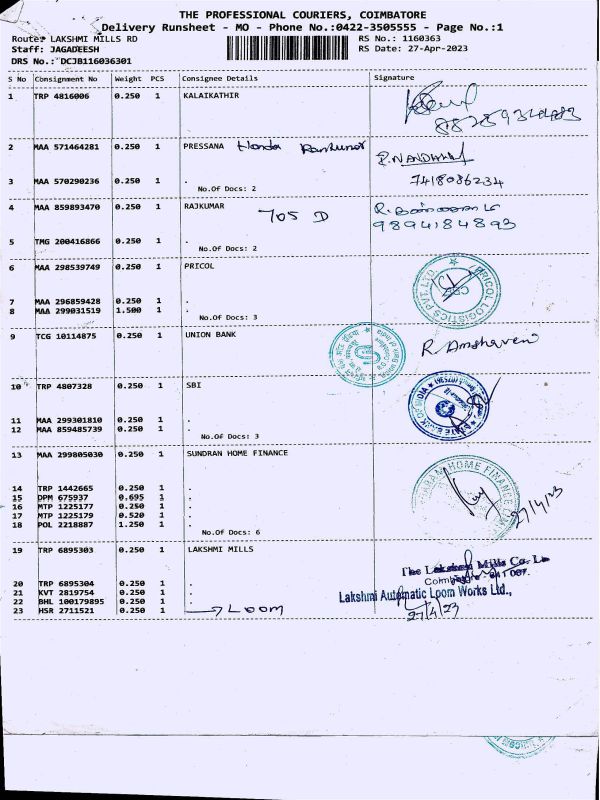 THE PROFESSIONAL COURIERS, COIMBATORE
Delivery Runsheet - MO - Phone No.:0422-3505555 - Page No.:1
Route: LAKSHMI MILLS RD RS No.: 1160363
Staff: JAGADEESH RS Date: 27-Apr-2023
DRS No.: DCJB116036301
S No Consignment No Weight PCS Consignee Details Signature
1 TRP 4816006 0.250 1 KALAIKATHIR
2 MAA 571464281 0.250 1 PRESSANA Honda
R.NANDHA
3 MAA 570290236 0.250 1 . 7418086234
No.Of Docs: 2
4 MAA 859893470 0.250 1 RAJKUMAR 705 D
9894184893
5 TMG 200416866 0.250 1 .
No.Of Docs: 2
6 MAA 298539749 0.250 1 PRICOL
PRICOL LOGISTICS PVT. LTD.
7 MAA 296859428 0.250 1 .
8 MAA 299031519 1.500 1 .
No.Of Docs: 3
9 TCG 10114875 0.250 1 UNION BANK
10 TRP 4807328 0.250 1 SBI
STATE BANK OF INDIA
11 MAA 299301810 0.250 1 .
12 MAA 859485739 0.250 1 .
No.Of Docs: 3
13 MAA 299805030 0.250 1 SUNDRAN HOME FINANCE
HOME FINANCE
14 TRP 1442665 0.250 1 .
15 DPM 675937 0.695 1 .
16 MTP 1225177 0.250 1 .
17 MTP 1225179 0.520 1 .
18 POL 2218887 1.250 1 .
27/4/23
No.Of Docs: 6
19 TRP 6895303 0.250 1 LAKSHMI MILLS
The Lakshmi Mills Co. L
Coimbatore - 641 007.
20 TRP 6895304 0.250 1 .
21 KVT 2819754 0.250 1 .
Lakshmi Automatic Loom Works Ltd.,
22 BHL 100179895 0.250 1 .
23 HSR 2711521 0.250 1 → LOOM
27/4/23